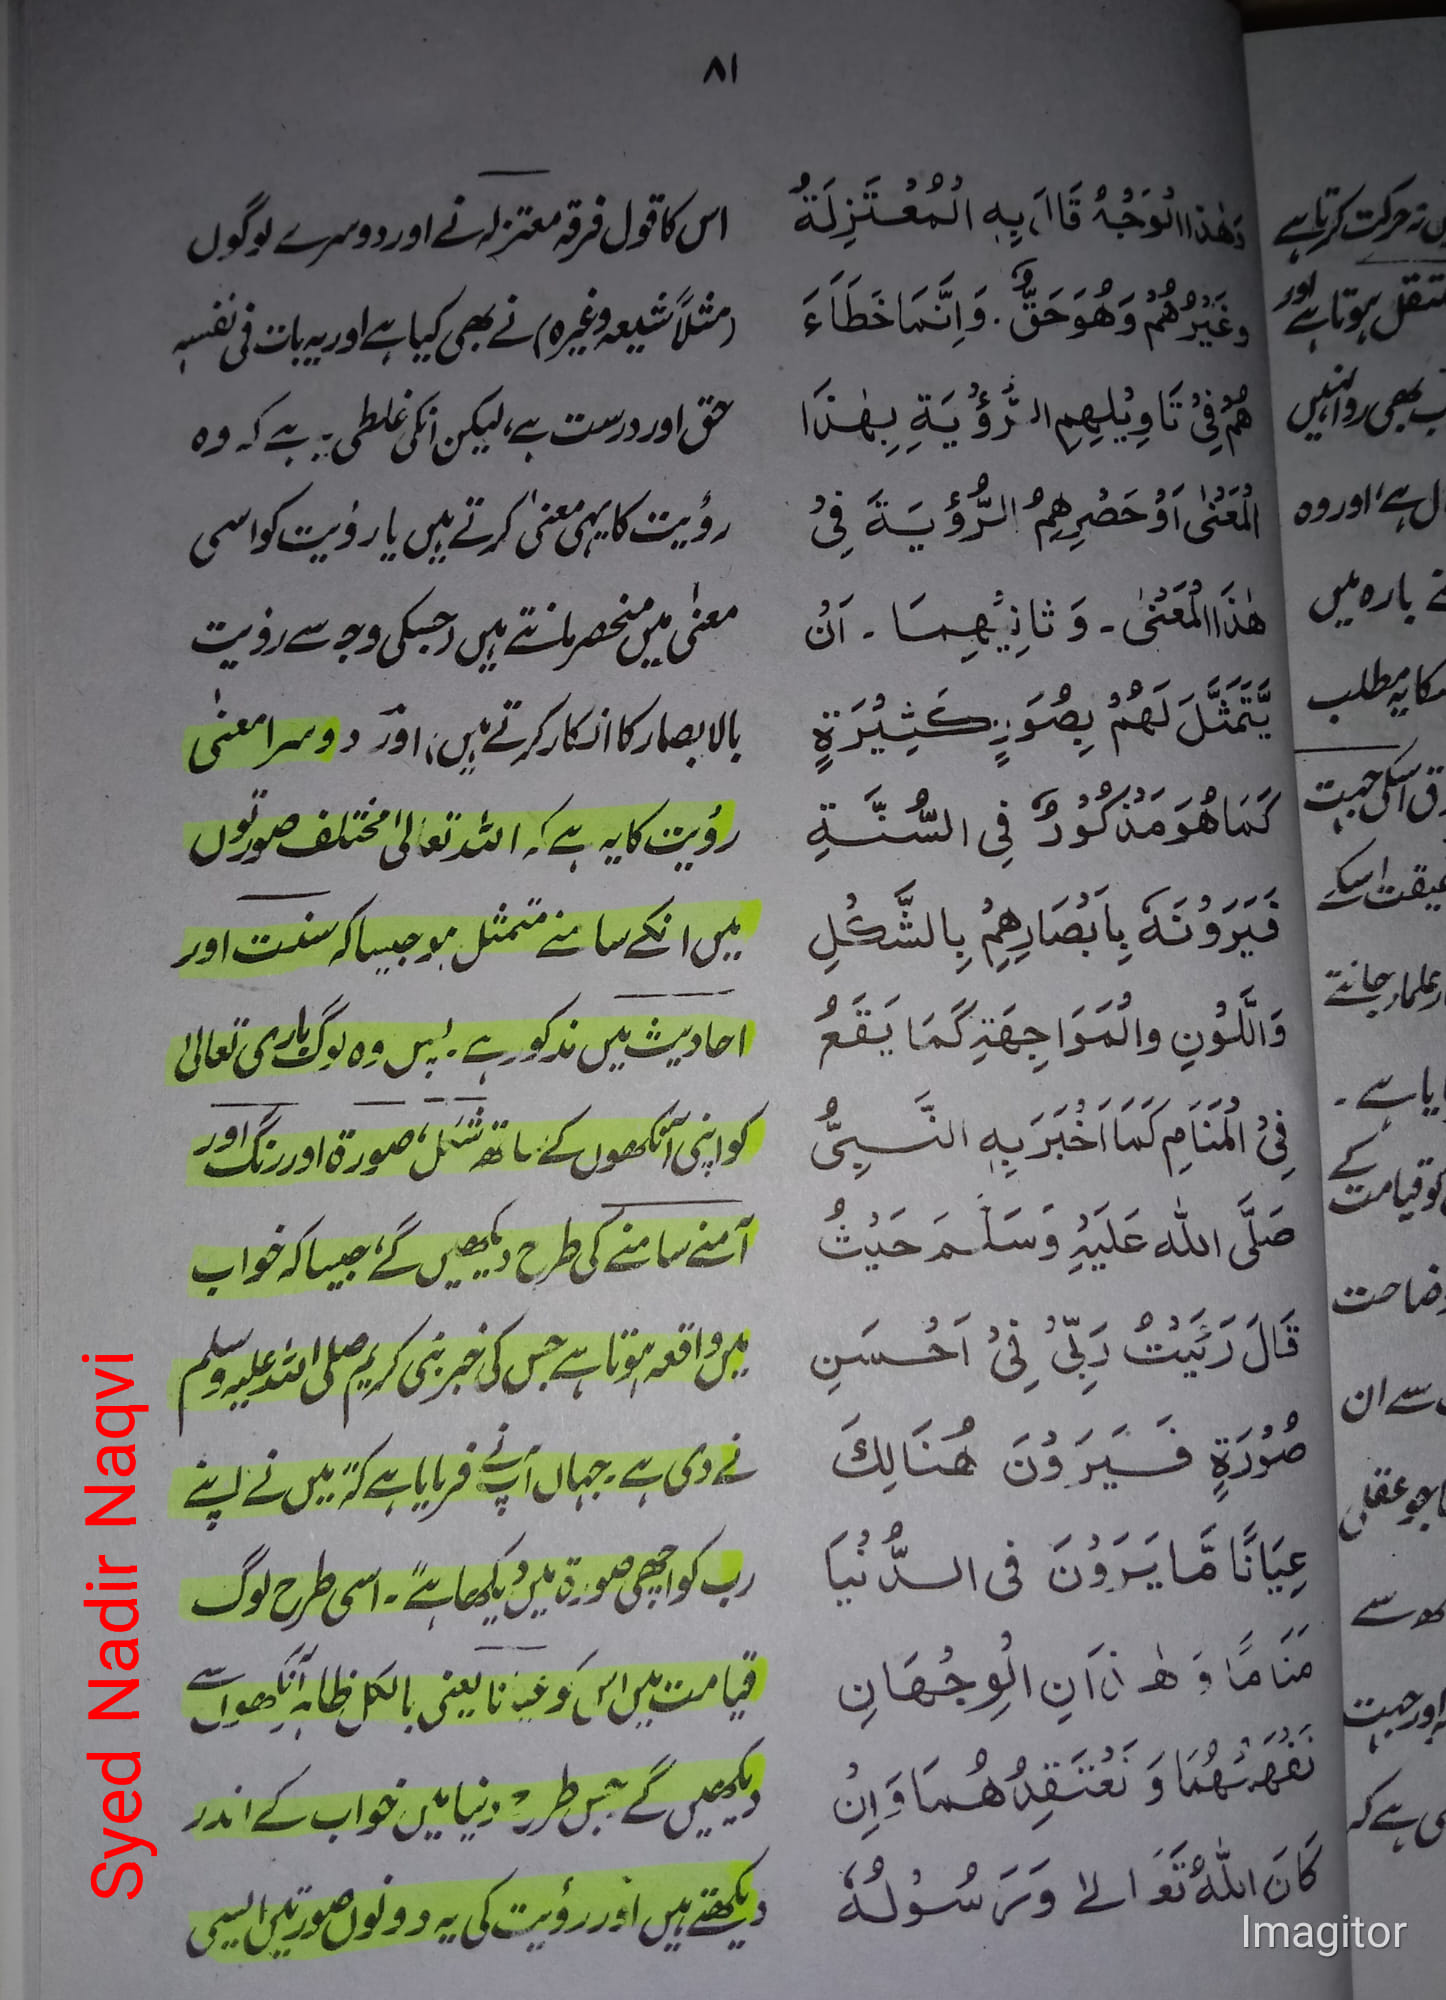 ٨١
وَهٰذَا الْوَجْهُ قَالَ بِهِ الْمُعْتَزِلَةُ
وغَيْرُهُمْ وَهُوَ حَقٌّ . وَاِنَّمَا خَطَاَءَ
هُمْ فِيْ تَاوِيْلِهِمِ الرُّؤْيَةِ بِهٰذَا
الْمَعْنٰى اَوْ حَصْرِهِمُ الرُّؤْيَةَ فِيْ
هٰذَا الْمَعْنٰى ۔ وَ ثَانِيْهِمَا ۔ اَنْ
يَّتَمَثَّلَ لَهُمْ بِصُوَرٍ كَثِيْرَةٍ
كَمَا هُوَ مَذْكُوْرٌ فِي السُّنَّةِ
فَيَرَوْنَهٗ بِاَبْصَارِهِمْ بِالشَّكْلِ
وَاللَّوْنِ والْمُوَاجِهَةِ كَمَا يَقَعُ
فِيْ الْمَنَامِ كَمَا اَخْبَرَ بِهِ النَّبِيُّ
صَلَّى اللّٰه عَلَيْهِ وَسَلَّمَ حَيْثُ
قَالَ رَئَيْتُ رَبِّيْ فِيْ اَحْسَنِ
صُوْرَةٍ فَيَرَوْنَ هُنَالِكَ
عِيَانًا مَّا يَرَوْنَ فی الدُّنْيَا
مَنَامًا وَ هٰذَانِ الْوِجْهَانِ
نَفْهَمُهُمَا وَ نَعْتَقِدُهُمَا وَاِنْ
كَانَ اللّٰهُ تَعَالےٰ وَرَسُوْلُهٗ
اس کا قول فرقہ معتزلہ نے اور دوسرے لوگوں
(مثلاً شیعہ وغیرہ) نے بھی کیا ہے اور یہ بات فی نفسہٖ
حق اور درست ہے، لیکن انکی غلطی یہ ہے کہ وہ
رؤیت کا یہی معنیٰ کرتے ہیں یا رؤیت کو اسی
معنیٰ میں منحصر مانتے ہیں (جسکی وجہ سے رؤیت
بالابصار کا انکار کرتے ہیں)، اور دوسرا معنیٰ
رؤیت کا یہ ہے کہ اللہ تعالیٰ مختلف صورتوں
میں انکے سامنے متمثل ہو جیسا کہ سنت اور
احادیث میں مذکور ہے ۔ پس وہ لوگ باری تعالیٰ
کو اپنی آنکھوں کے ساتھ شکل، صورۃ اور رنگ اور
آمنے سامنے کی طرح دیکھیں گے، جیسا کہ خواب
میں واقعہ ہوتا ہے جس کی خبر نبی کریم صلی اللہ علیہ وسلم
نے دی ہے ۔ جہاں آپؐ نے فرمایا ہے کہ "میں نے اپنے
رب کو اچھی صورۃ میں دیکھا ہے" ۔ اسی طرح لوگ
قیامت میں اس کو عیانا یعنی بالکل ظاہر آنکھوں سے
دیکھیں گے جس طرح دنیا میں خواب کے اندر
دیکھتے ہیں اور رؤیت کی یہ دونوں صورتیں ایسی
نہ حرکت کرتا ہے
منتقل ہوتا ہے اور
بھی روا نہیں
ہے، اور وہ
بارہ میں
کا یہ مطلب
اسکی جہت
اسکے
جانتے
ہے ۔
کو قیامت کے
وضاحت
سے ان
جو عقلی
سے
اور جہت
ہے کہ
Syed Nadir Naqvi
Imagitor